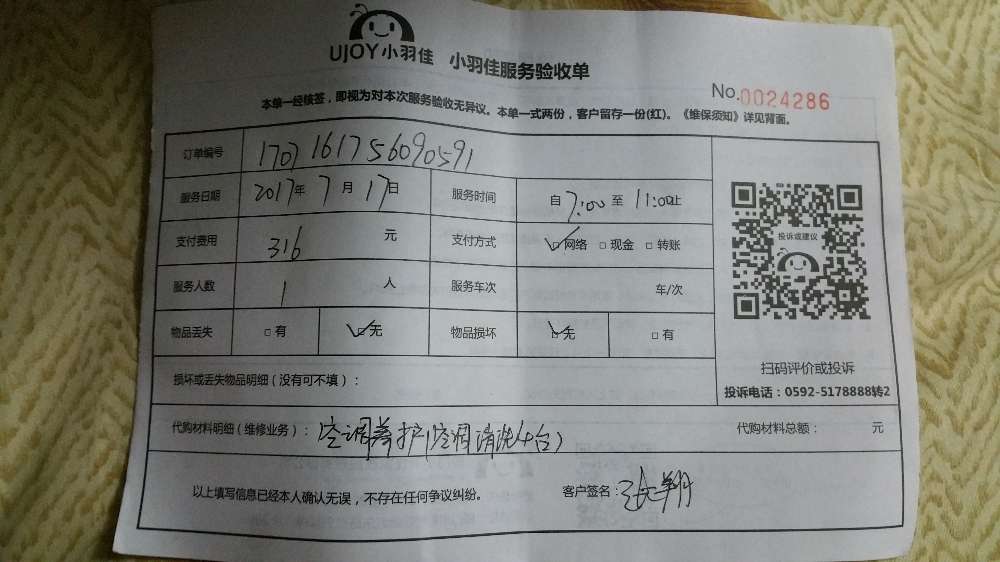 UJOY小羽佳 小羽佳服务验收单
No.0024286
本单一经核签，即视为对本次服务验收无异议。本单一式两份，客户留存一份(红)。《维保须知》详见背面。
订单编号 1707161756090591
服务日期 2017年7月17日 服务时间 自7:00至11:00止
投诉或建议
支付费用 316 元 支付方式 ☑网络 □现金 □转账
服务人数 1 人 服务车次 车/次
物品丢失 □有 ☑无 物品损坏 ☑无 □有
扫码评价或投诉
投诉电话：0592-5178888转2
损坏或丢失物品明细（没有可不填）：
代购材料明细（维修业务）：空调养护(空调清洗4台) 代购材料总额： 元
以上填写信息已经本人确认无误，不存在任何争议纠纷。 客户签名：张翔